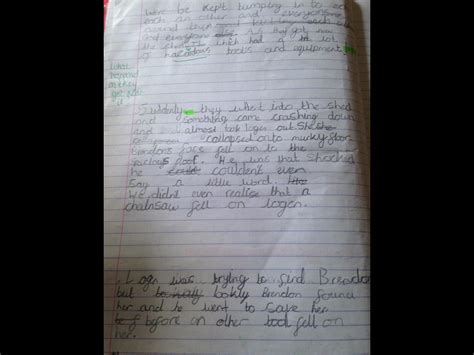 were be kept bumping in to
each an other and everyone
around them
and everyone As they got near
the shed which had a lot
of hazardous tools and equipment
what
happened
as they
got near
it
Suddenly they went into the shed
and something came crashing down
and almost took logen out. She
collapsed onto murky floor
Brendons face fell on to the
He was that shocked
he couldent even
Say a little word.
We didnt even realise that a
chainsaw fell on logen.
Logen was trying to find Brendon
but Brendon found
her and he went to save her
before an other tool fell on
her.